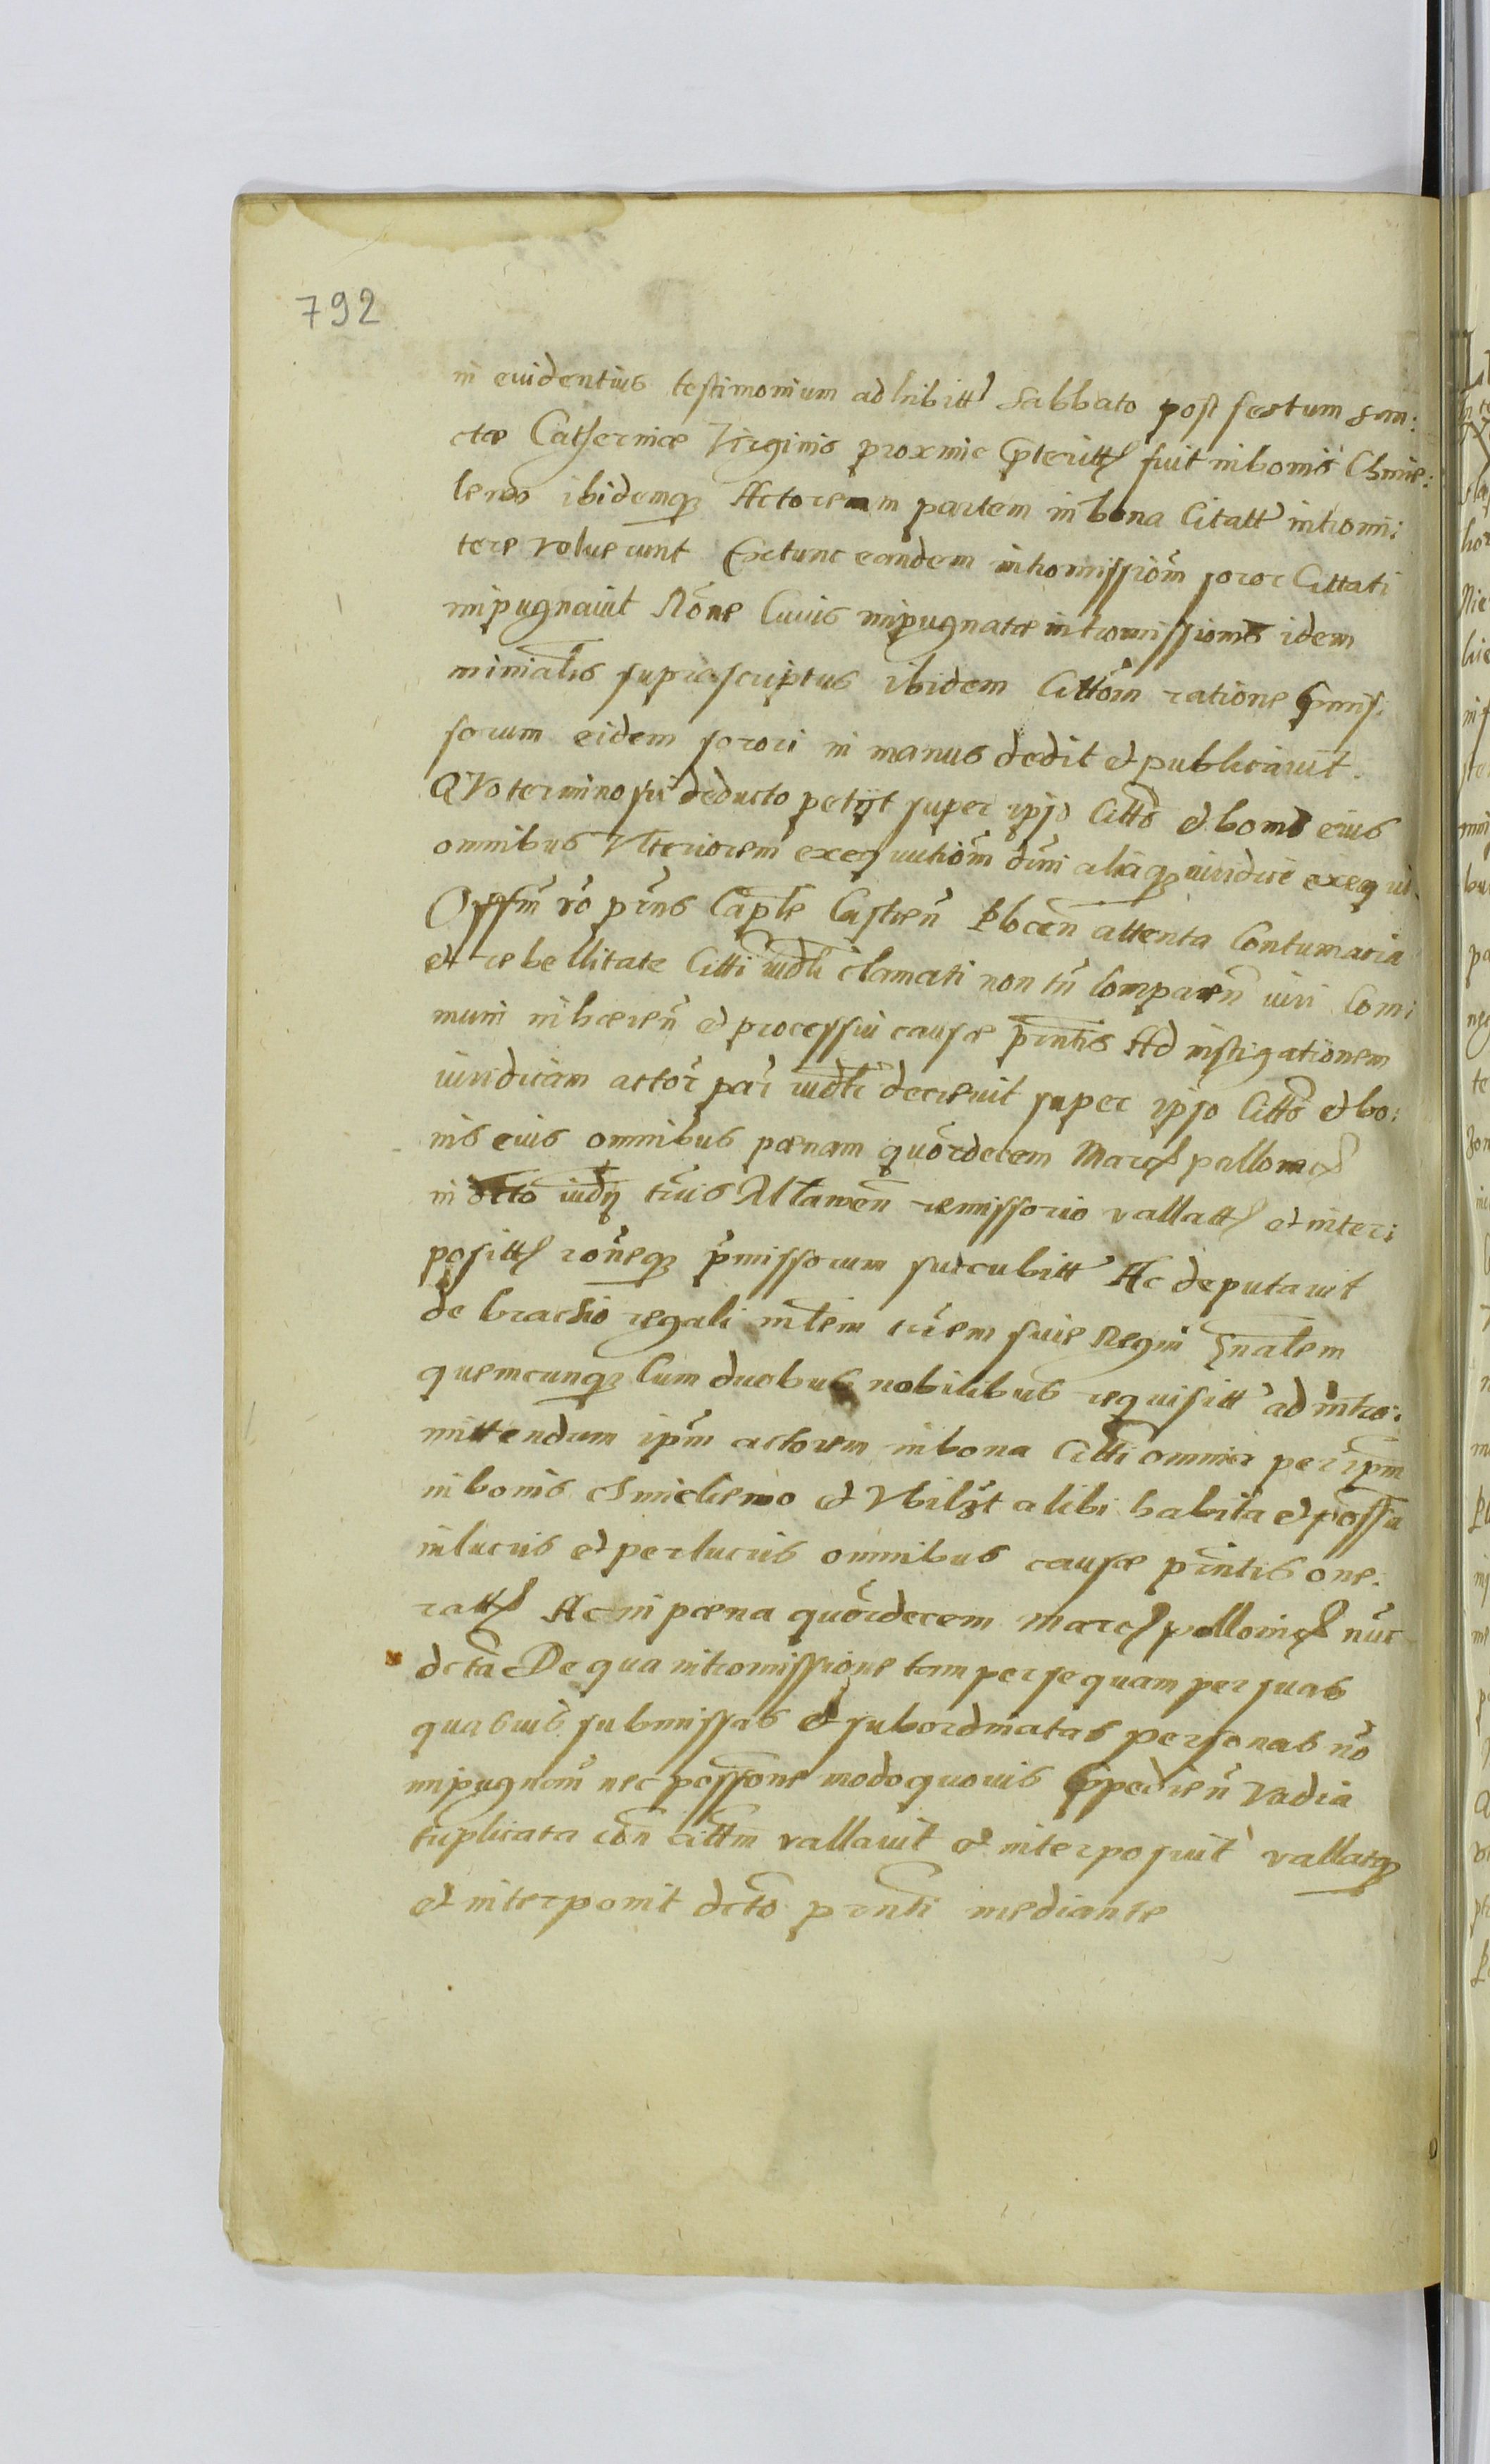 792
in euidentius testimonium adhibitt Sabbato post festum san:
ctæ Catherinæ Virginis proxime pteritt fuit in bonis Chmie:
lewo ibidemq Actoream partem in bona Citatt intromi:
tere voluerunt Extunc eandem intromissiom soror Cittati
impugnauit Rone Cuius impugnatæ intromissionis idem
minialis suprascriptus ibidem Cittom ratione pmis:
sorum eidem sorori in manus dedit et publicauit.
QVo termino sic deducto petijt super ipso Citto et bonis eius
omnibus Vlteriorem exequutiom dni aliaq iuridice exequi
Offm vo pns Caple Castren Plocen attenta Contumacia
et rebellitate Citti iudli clamati non tn comparen iuri Com:
muni inhæren et processui causæ pntis Ad instigationem
iuridicam actor par iudli decreuit super ipso Citto et bo:
nis eius omnibus pænam quordecem Marc pallonic
in octo iudy tris Mlawen remissorio vallatt et inter:
positt roneq pmissorum succubitt Ac deputauit
de brachio regali mlem trem siue Regni gnalem
quemcunq Cum duobus nobilibus requisitt ad intro:
mittendum ipm actorem in bona Citti omnia per ipm
in bonis chmieliewo et Vbilzt alibi habita et possa
in lucris et perlucris omnibus causæ pntis one:
ratt Ac in pæna quordecem marc pollonic nuc
dcta De qua intromissione tam per se quam per suas
quasuis submissas et subordinatas personas no
impugnan nec possone modo quouis ppedien Vadia
triplicata con cittm vallauit et interposuit vallatq
et interponit dcto pnti mediante